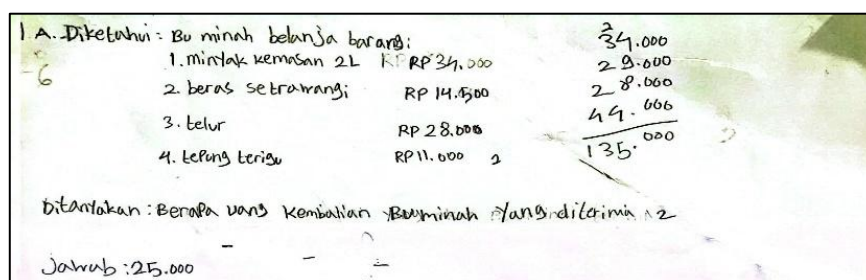 1 A. Diketahui: Bu minah belanja barang:
1. minyak kemasan 2L RP 34.000
2. beras setrawangi RP 14.500
3. telur RP 28.000
4. tepung terigu RP 11.000 2
2
34.000
29.000
28.000
44.000
135.000
-6
Ditanyakan: Berapa uang kembalian Buminah yang diterima 2
Jawab: 25.000